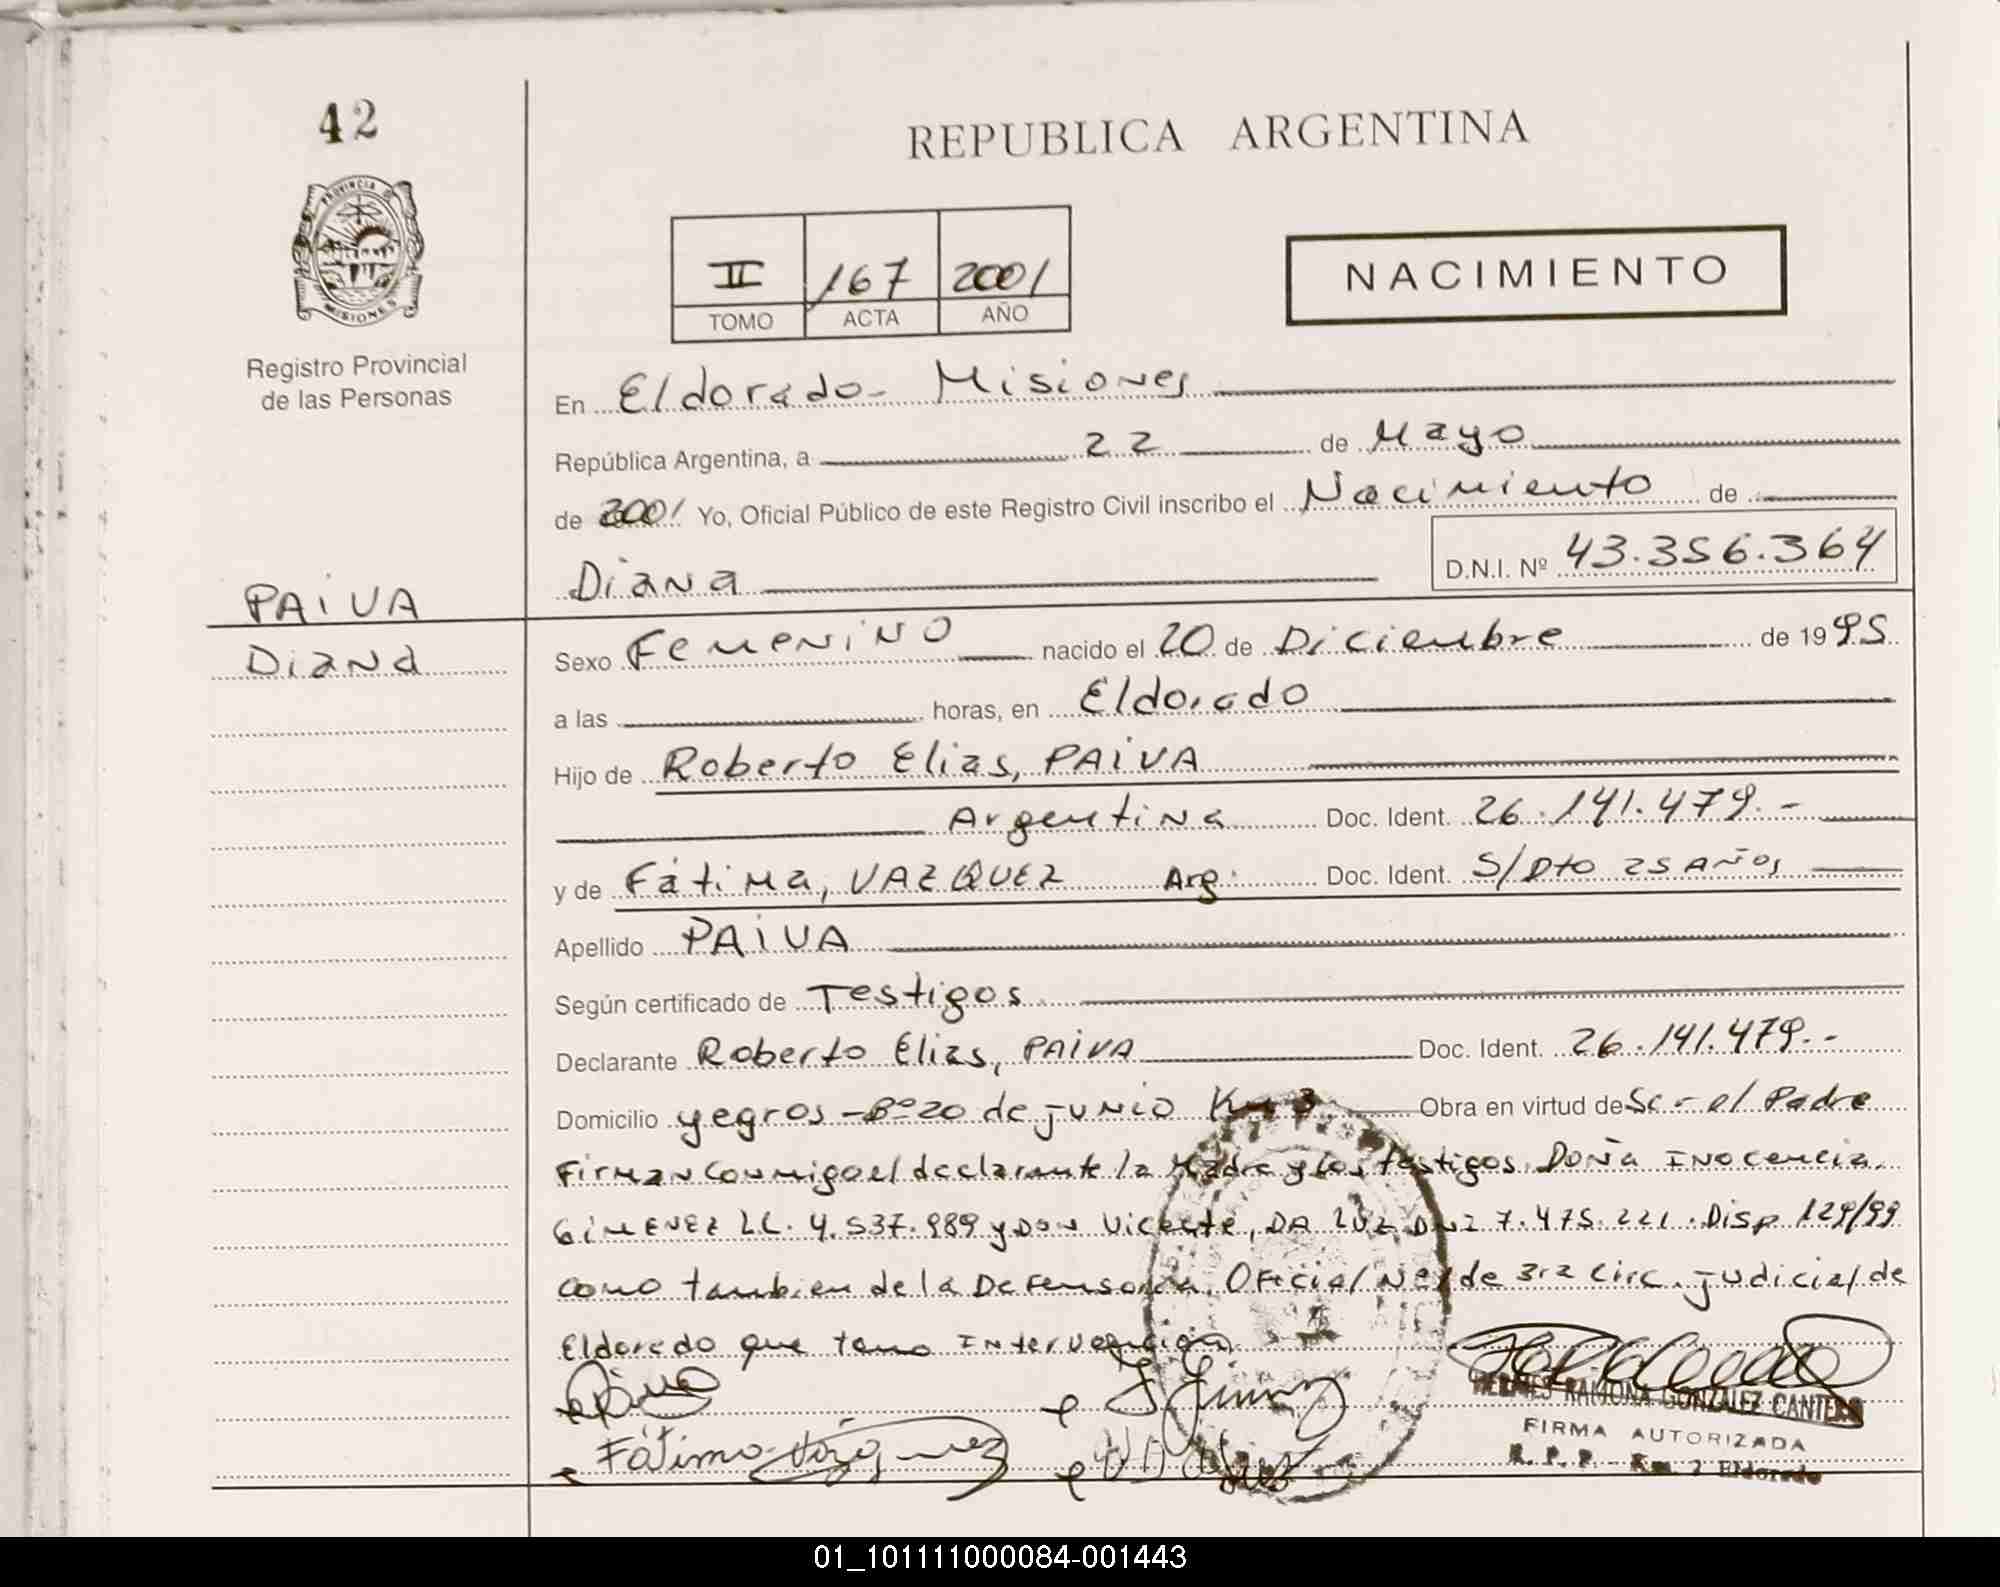 42
PROVINCIA D
MISIONES
Registro Provincial
de las Personas
REPUBLICA ARGENTINA
II 167 2001
TOMO ACTA AÑO
NACIMIENTO
En Eldorado - Misiones
República Argentina, a 22 de Mayo
de 2001 Yo, Oficial Público de este Registro Civil inscribo el Nacimiento de
Diana D.N.I. Nº 43.356.364
PAIVA
Diana
Sexo Femenino nacido el 20 de Diciembre de 1995
a las horas, en Eldorado
Hijo de Roberto Elias, PAIVA
Argentina Doc. Ident. 26.141.479.-
y de Fátima, VAZQUEZ Arg. Doc. Ident. S/Dto 25 Años
Apellido PAIVA
Según certificado de Testigos
Declarante Roberto Elias, PAIVA Doc. Ident. 26.141.479.-
Domicilio yegros - Bº 20 de junio Km 3 Obra en virtud de Sc - el Padre
Firman conmigo el declarante la Madre y los testigos Doña Inocencia
GIMENEZ LC. 4.537.989 y Don Vicente, DA LUZ DNI 7.475.221. Disp 129/99
como tambien de la Defensoria Oficial Nº de 3ra Circ. judicial de
Eldorado que tomo Intervención
Fátima Vázquez
HERMES RAMONA GONZALEZ CANTERO
FIRMA AUTORIZADA
R. P. P. - Km. 2 Eldorado
01_101111000084-001443